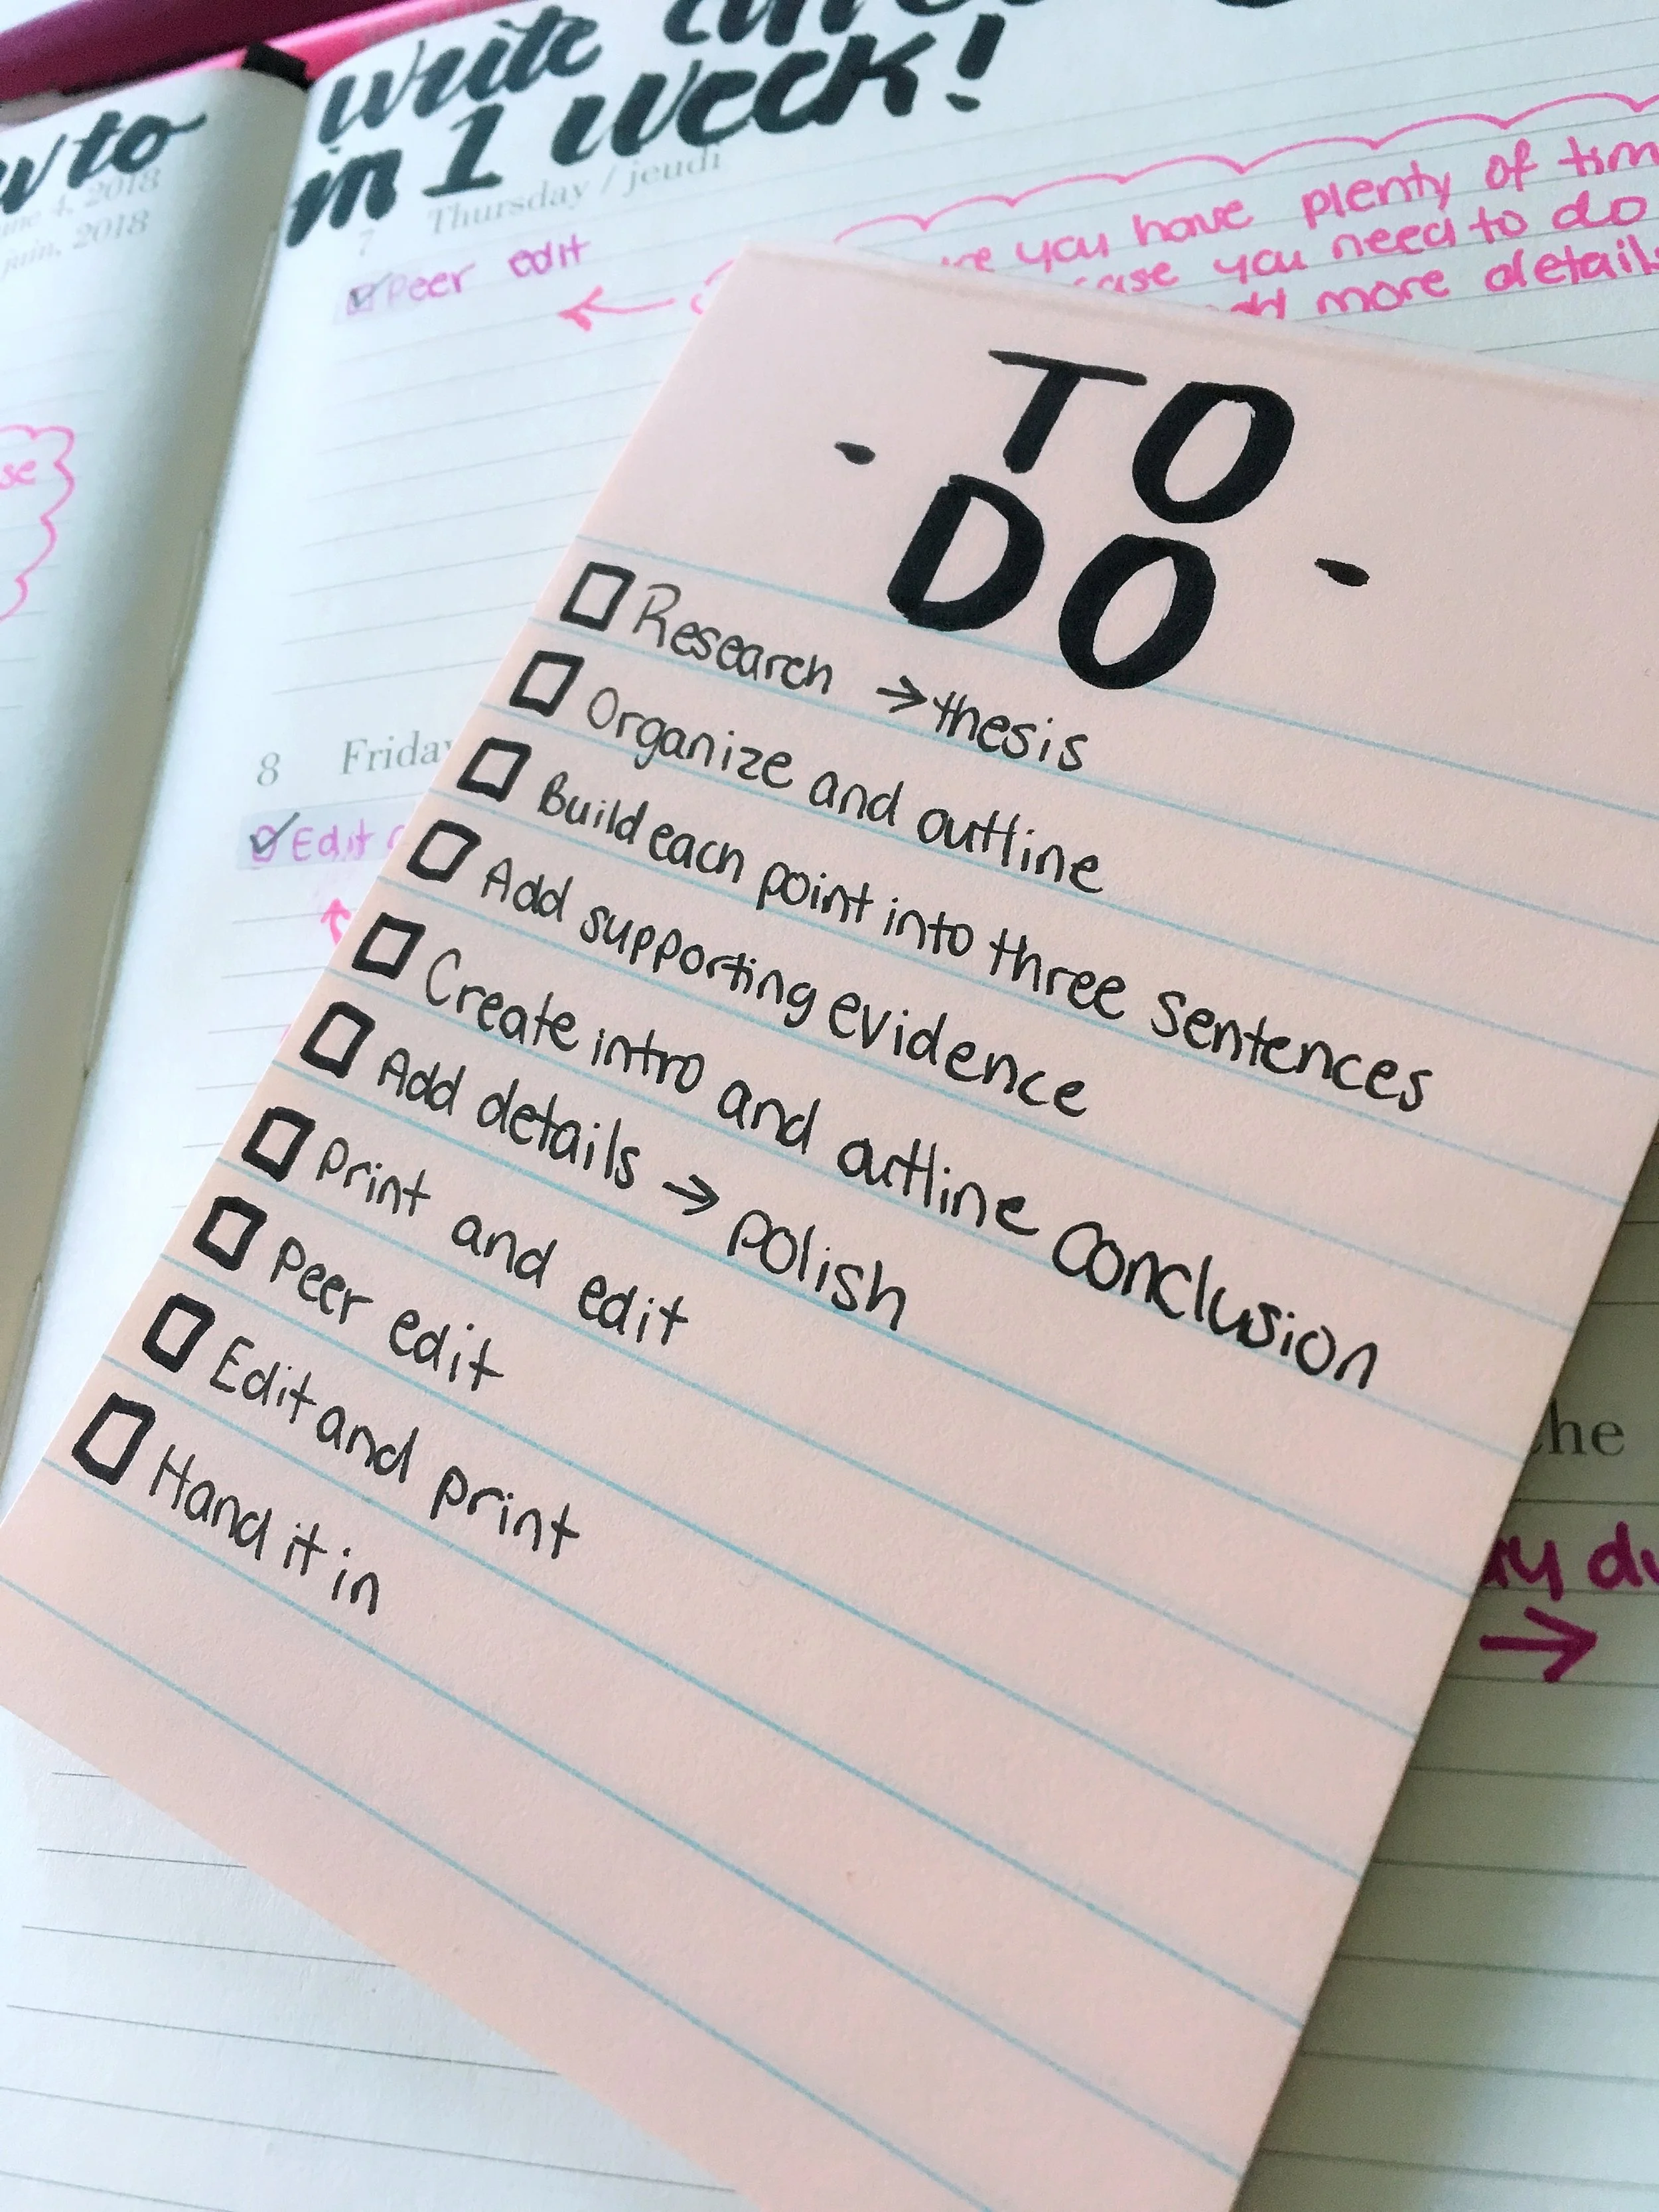 to
write
in 1 week!
2018
juin, 2018
7 Thursday / jeudi
Peer edit
you have plenty of
you need to do
more details
se
TO
- DO -
Research → thesis
Organize and outline
Build each point into three sentences
Add supporting evidence
Create intro and outline conclusion
Add details → polish
Print and edit
Peer edit
Edit and print
Hand it in
8 Friday
Edit